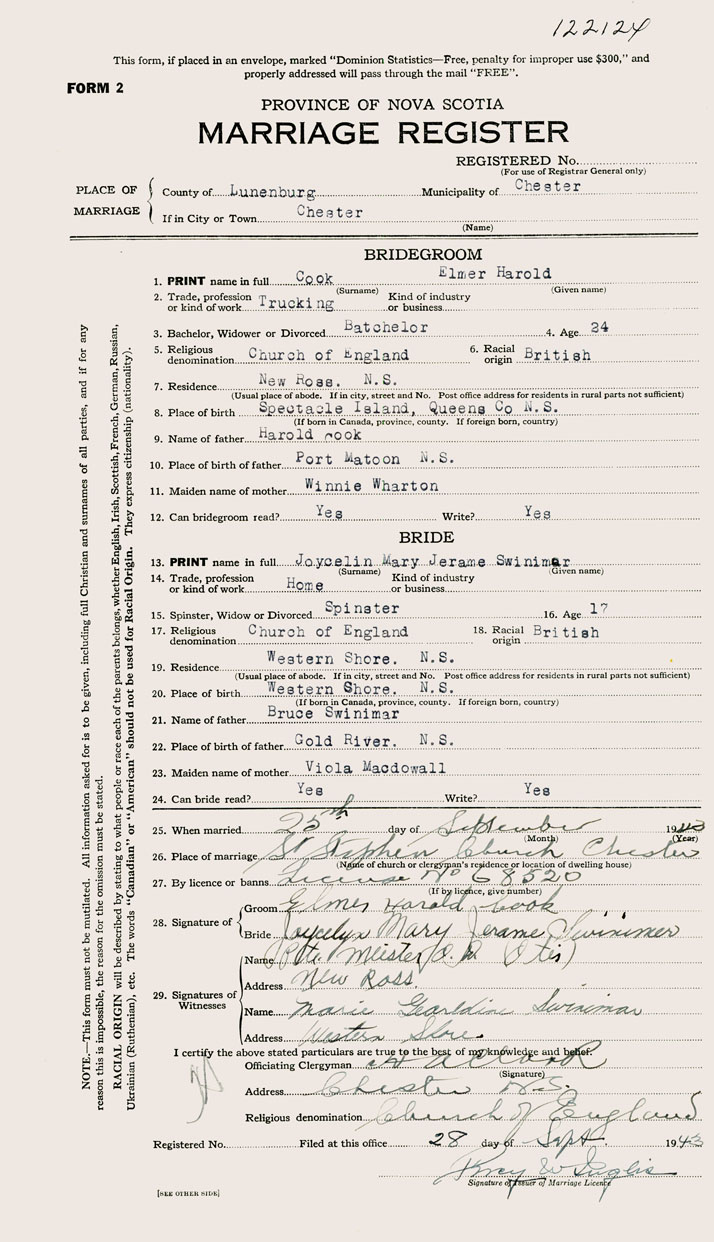 122124
This form, if placed in an envelope, marked "Dominion Statistics—Free, penalty for improper use $300," and
properly addressed will pass through the mail "FREE".
FORM 2
PROVINCE OF NOVA SCOTIA
MARRIAGE REGISTER
REGISTERED No.
(For use of Registrar General only)
PLACE OF MARRIAGE
County of Lunenburg Municipality of Chester
If in City or Town Chester
(Name)
BRIDEGROOM
1. PRINT name in full Cook Elmer Harold
(Surname) (Given name)
2. Trade, profession or kind of work Trucking Kind of industry or business
3. Bachelor, Widower or Divorced Batchelor 4. Age 24
5. Religious denomination Church of England 6. Racial origin British
7. Residence New Ross. N.S.
(Usual place of abode. If in city, street and No. Post office address for residents in rural parts not sufficient)
8. Place of birth Spectacle Island, Queens Co N.S.
(If born in Canada, province, county. If foreign born, country)
9. Name of father Harold cook
10. Place of birth of father Port Matoon N.S.
11. Maiden name of mother Winnie Wharton
12. Can bridegroom read? Yes Write? Yes
BRIDE
13. PRINT name in full Joycelin Mary Jerame Swinimar
(Surname) (Given name)
14. Trade, profession or kind of work Home Kind of industry or business
15. Spinster, Widow or Divorced Spinster 16. Age 17
17. Religious denomination Church of England 18. Racial origin British
19. Residence Western Shore. N.S.
(Usual place of abode. If in city, street and No. Post office address for residents in rural parts not sufficient)
20. Place of birth Western Shore. N.S.
(If born in Canada, province, county. If foreign born, country)
21. Name of father Bruce Swinimar
22. Place of birth of father Gold River. N.S.
23. Maiden name of mother Viola Macdowall
24. Can bride read? Yes Write? Yes
25. When married 25th day of September 1943
(Month) (Year)
26. Place of marriage St Stephen Church Chester
(Name of church or clergyman's residence or location of dwelling house)
27. By licence or banns License No 68520
(If by licence, give number)
28. Signature of
Groom Elmer Harold Cook
Bride Joycelyn Mary Jerame Swinimer
29. Signatures of Witnesses
Name Pte. Meister O. R (Otis)
Address New Ross.
Name Marie Gearldine Swinimar
Address Western Shore.
I certify the above stated particulars are true to the best of my knowledge and belief.
Officiating Clergyman
(Signature)
Address Chester N.S.
Religious denomination Church of England
Registered No. Filed at this office 28 day of Sept. 1943
Percy W Inglis
Signature of Issuer of Marriage Licence
[SEE OTHER SIDE]
NOTE.—This form must not be mutilated. All information asked for is to be given, including full Christian and surnames of all parties, and if for any
reason this is impossible, the reason for the omission must be stated.
RACIAL ORIGIN will be described by stating to what people or race each of the parents belongs, whether English, Irish, Scottish, French, German, Russian,
Ukrainian (Ruthenian), etc. The words "Canadian" or "American" should not be used for Racial Origin. They express citizenship (nationality).